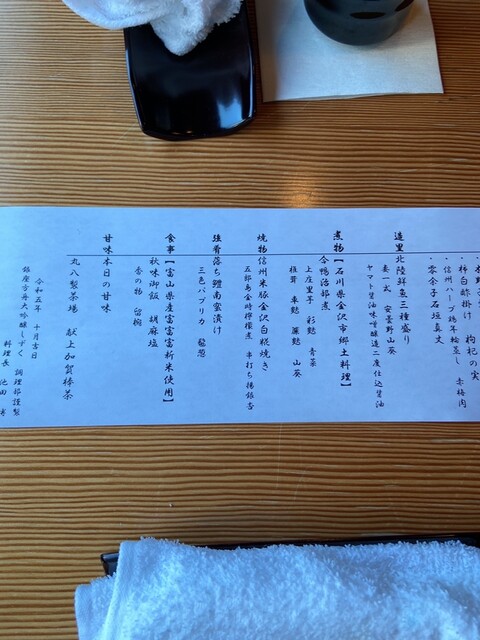 枸杞の実
柿白酢掛け
信州ハーブ鶏年輪蒸し 赤梅肉
零余子石垣真丈
造里
北陸鮮魚三種盛り
妻一式 安曇野山葵
ヤマト醤油味噌醸造二度仕込醤油
煮物
【石川県金沢市郷土料理】
合鴨治部煮
上庄里芋 彩麩 青菜
椎茸 車麩 簾麩 山葵
焼物
信州米豚金沢白糀焼き
五郎島金時檸檬煮 串打ち揚銀杏
強肴
落ち鱧南蛮漬け
三色パプリカ 酸橘
食事
【富山県産富富富新米使用】
秋味御飯 胡麻塩
香の物 留椀
甘味
本日の甘味
丸八製茶場 献上加賀棒茶
令和五年 十月吉日
銀座古舟大吟醸しずく 調理部謹製
料理長 池田